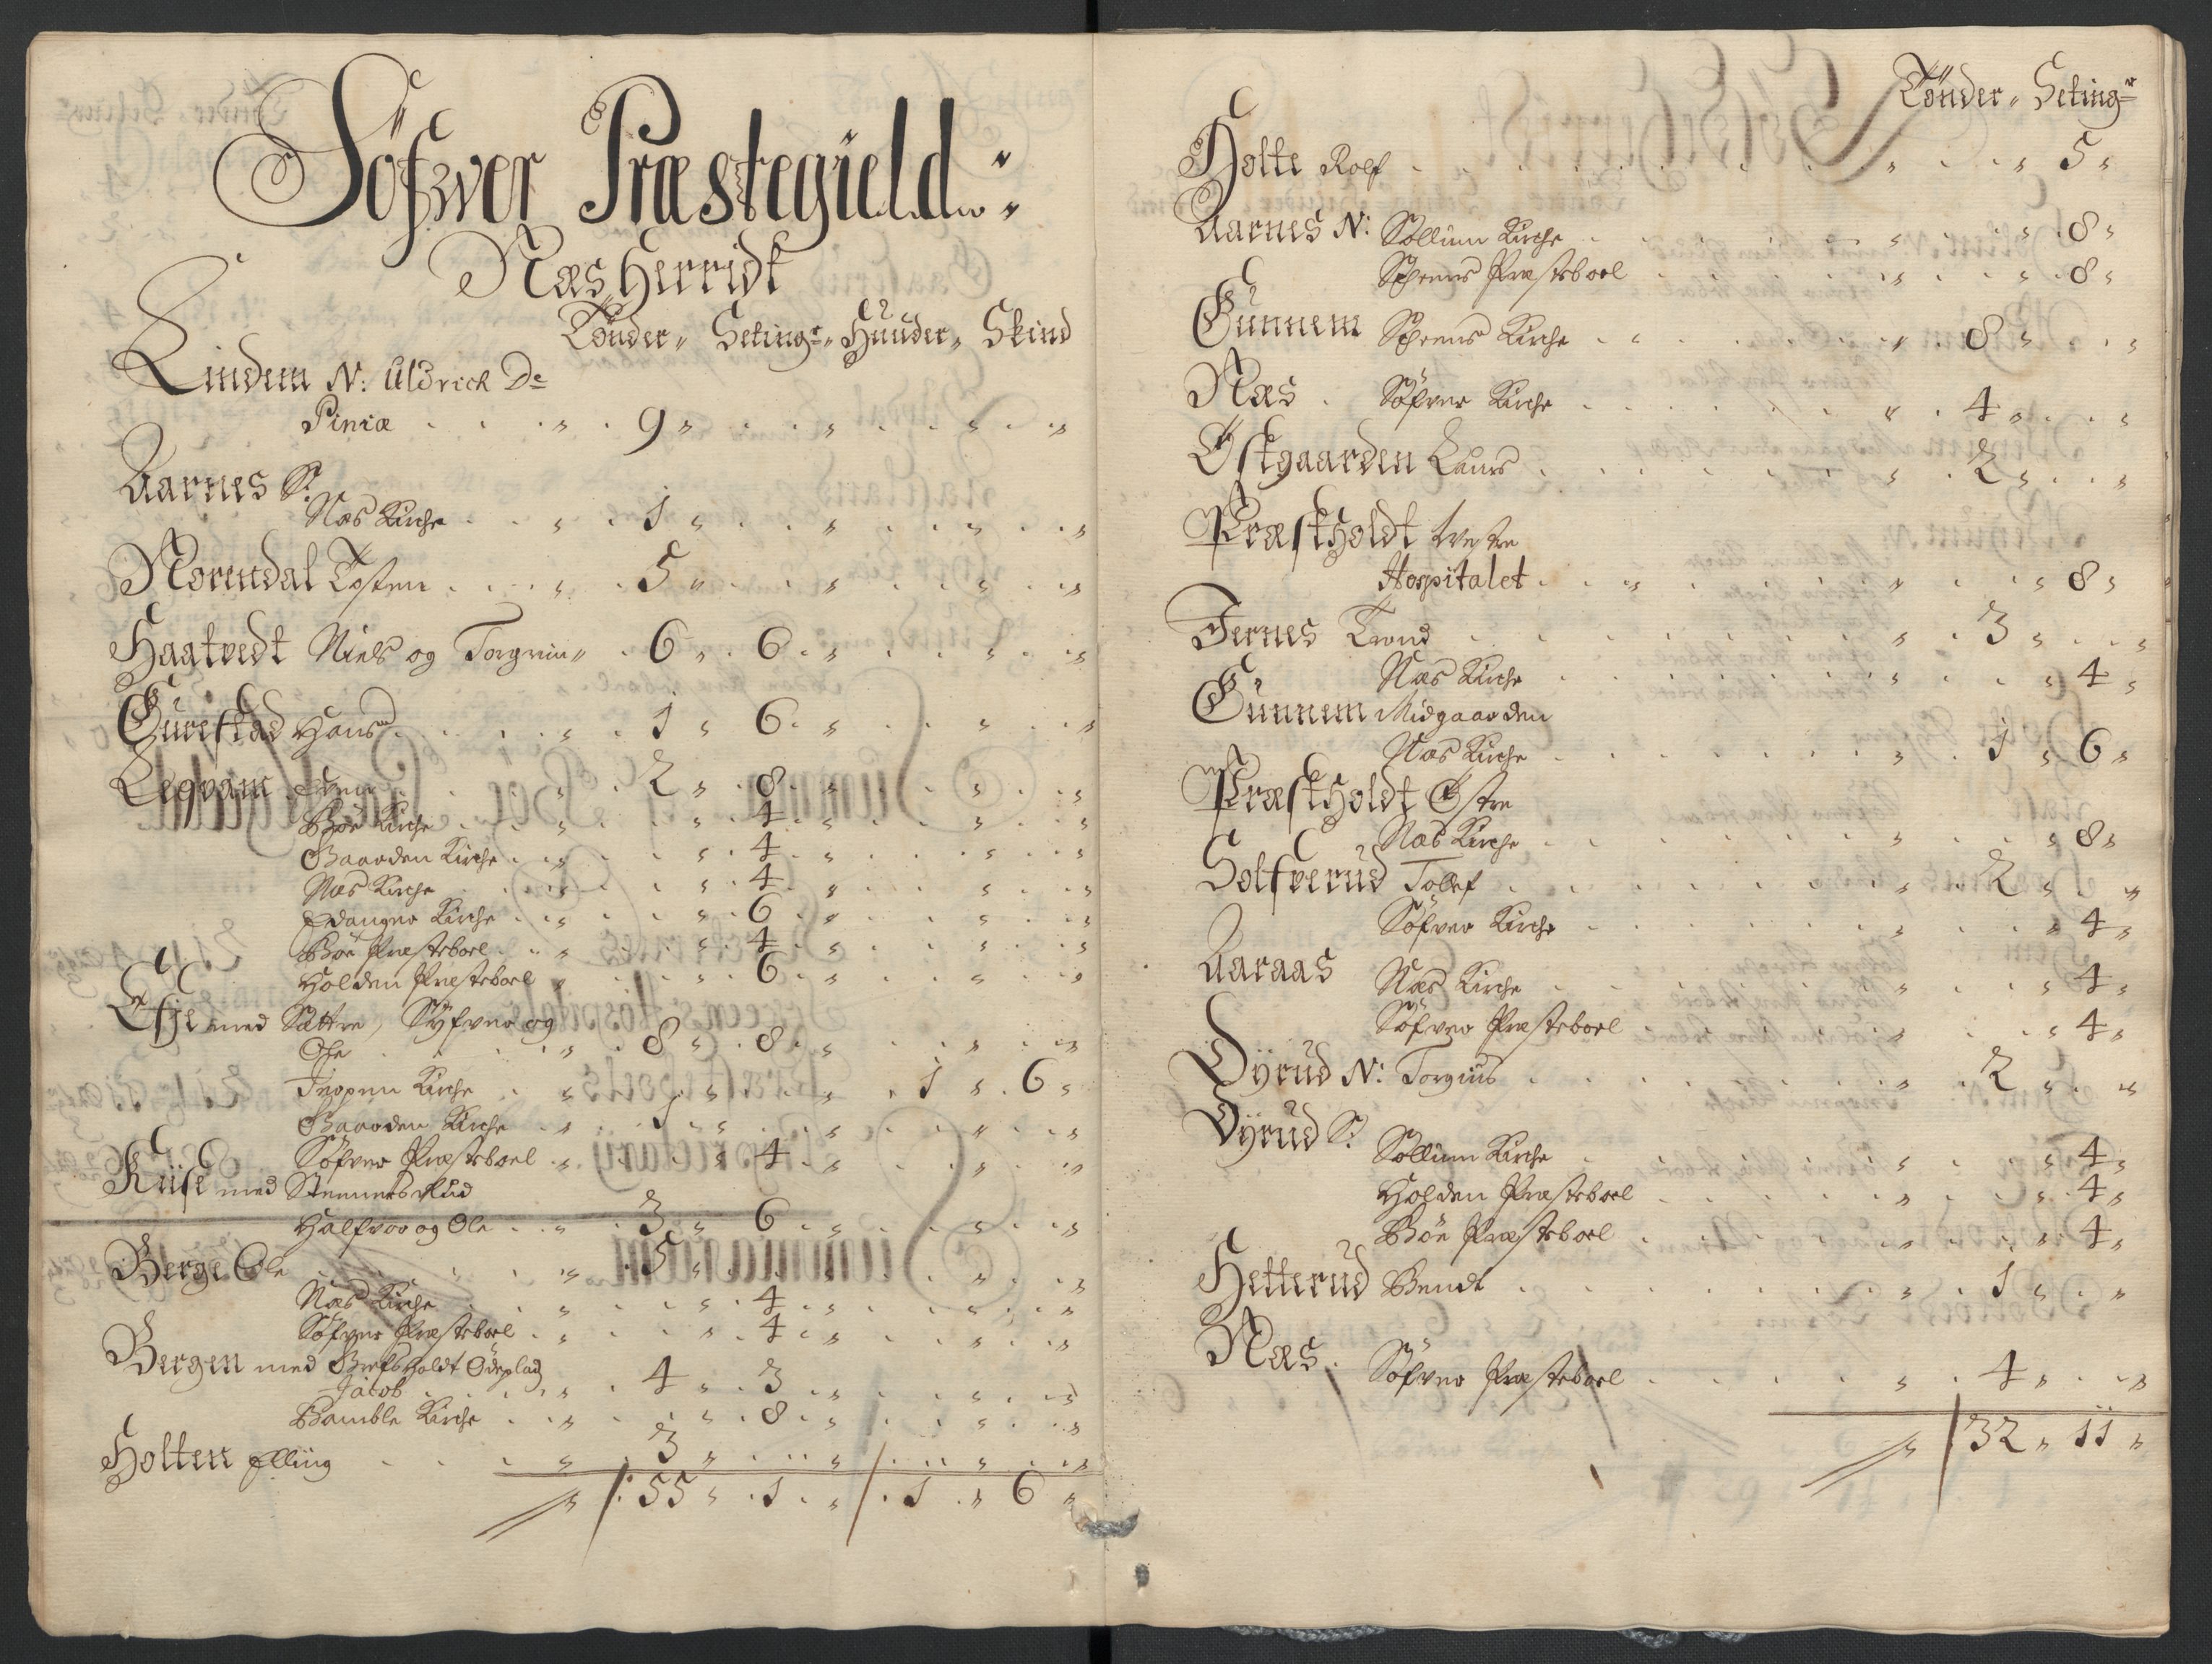 Söfwer Præstegield
Næs Herridt
Tönder Setingr Huuder Skind
Lindem N: Uldrich De
Piniæ 9
Aarnes S:
Næs Kirche 1
Norendal Tosten 5
Haatvedt Niels og Torgrim 6 6
Gurestad Hans 1 6
Legvam Even 2 8
Böe Kirche 4
Gaarden Kirche 4
Næs Kirche 4
Edanger Kirche 6
Böe Præsteboel 4
Holden Præsteboel 6
Efje med Sættre, Syfver og
Ole 8 8
Tropen Kirche 1 6
Gaarden Kirche 1
Söfver Præsteboel 4
Kiise med Stennersrud
Halfvor og Ole 3 6
Berge Ole 5
Næs Kirche 4
Söfver Præsteboel 4
Bergen med Grefsholdt Ödeplads
Jacob 4 3
Bamble Kirche 8
Holten Elling 3
55 1 1 6
Tönder Setingr
Holte Rolf 5
Aarnes N: Sollum Kirche 8
Schens Præsteboel 8
Gunnem Schens Kirche 8
Næs Söfver Kirche 4
Østgaarden Laurs 2
Præstholdt Westre
Hospitalet 8
Fernes Trond 3
Næs Kirche 4
Gunnem Midgaarden
Næs Kirche 1 6
Præstholdt Østre
Næs Kirche 8
Solfverud Tollef 2
Söfver Kirche 4
Aaraas Næs Kirche 4
Söfver Præsteboel 4
Dyrud N: Torgius 2
Dyrud S:
Sollum Kirche 4
Holden Præsteboel 4
Böe Præsteboel 4
Hetterud Bendt 1
Næs
Söfver Præsteboel 4
32 11